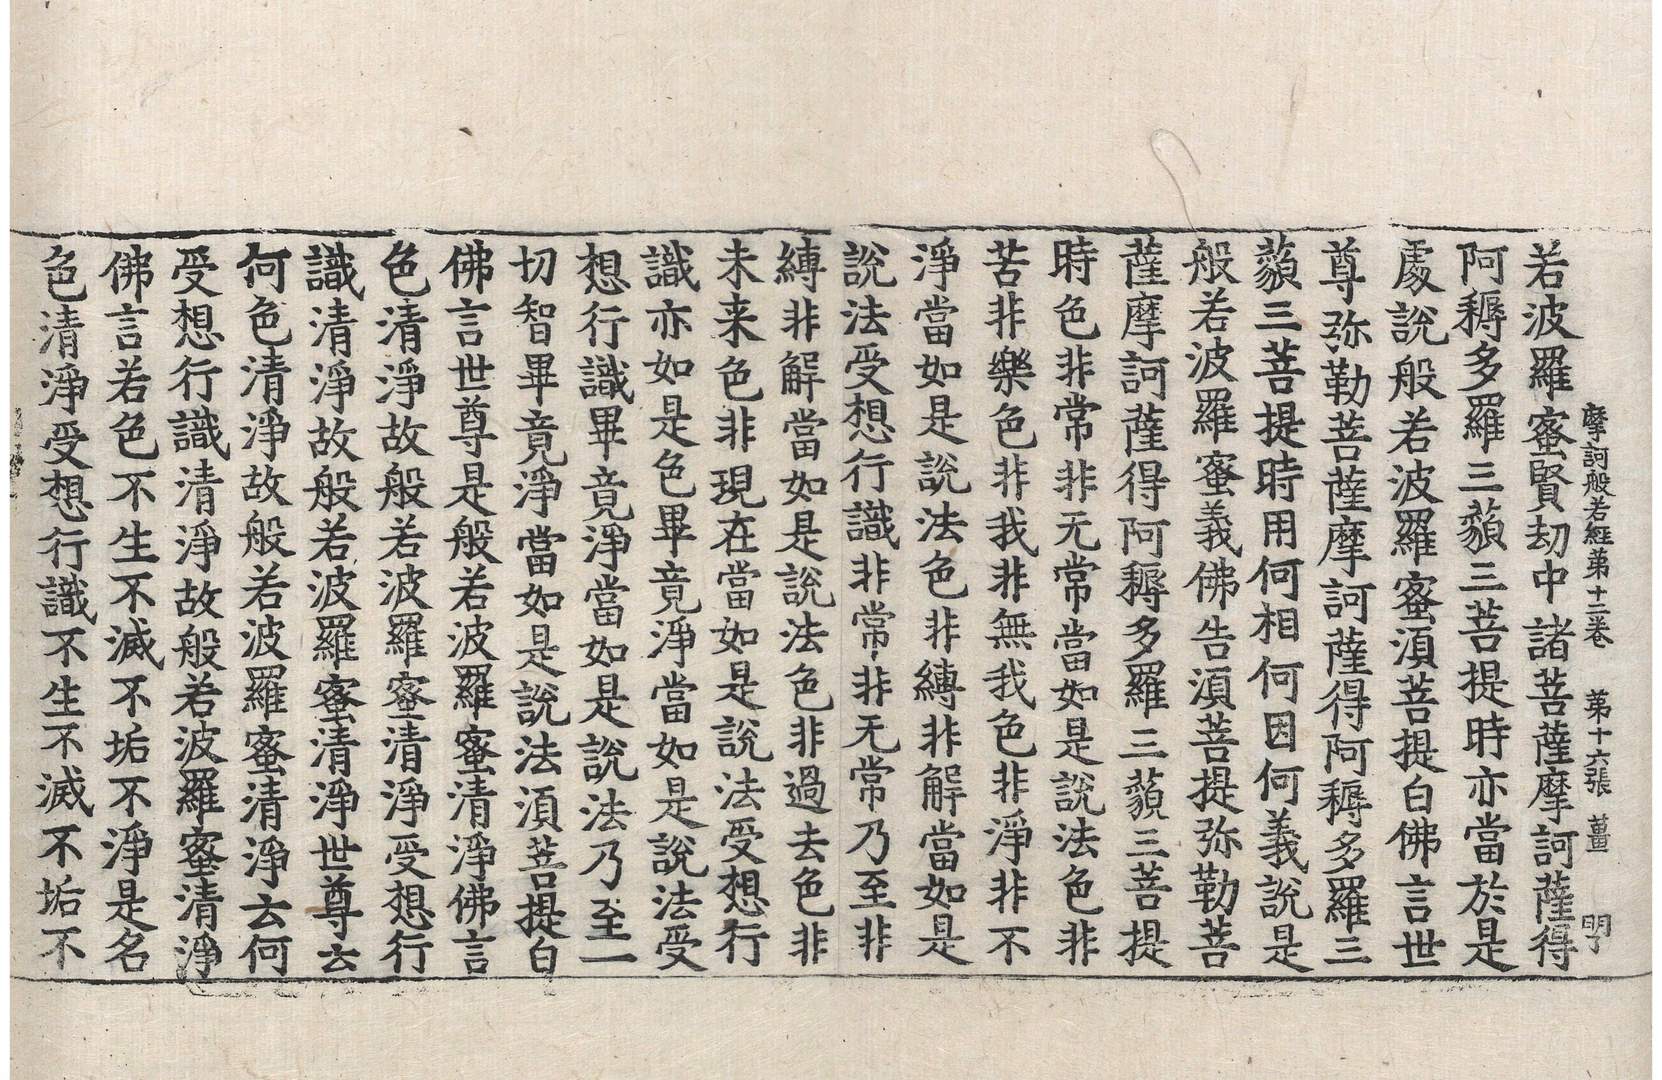 摩訶般若経第十二卷　第十六張　薑　明了
若波羅蜜賢劫中諸菩薩摩訶薩得
阿耨多羅三藐三菩提時亦當於是
處說般若波羅蜜湏菩提白佛言世
尊弥勒菩薩摩訶薩得阿耨多羅三
藐三菩提時用何相何因何義說是
般若波羅蜜義佛告湏菩提弥勒菩
薩摩訶薩得阿耨多羅三藐三菩提
時色非常非无常當如是說法色非
苦非樂色非我非無我色非淨非不
淨當如是說法色非縛非解當如是
說法受想行識非常非无常乃至非
縛非解當如是說法色非過去色非
未来色非現在當如是說法受想行
識亦如是色畢竟淨當如是說法受
想行識畢竟淨當如是說法乃至一
切智畢竟淨當如是說法湏菩提白
佛言世尊是般若波羅蜜清淨佛言
色清淨故般若波羅蜜清淨受想行
識清淨故般若波羅蜜清淨世尊云
何色清淨故般若波羅蜜清淨云何
受想行識清淨故般若波羅蜜清淨
佛言若色不生不滅不垢不淨是名
色清淨受想行識不生不滅不垢不